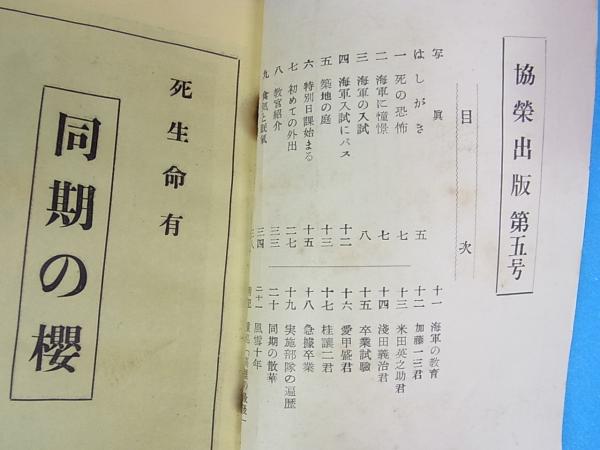 協榮出版第五号
目次
写眞
はしがき 五
一 死の恐怖 七
二 海軍に憧憬 七
三 海軍の入試 八
四 海軍入試にパス 十二
五 築地の庭 十三
六 特別日課始まる 十五
七 初めての外出 二七
八 教官紹介 三三
九 三四
十一 海軍の教育
十二 加藤一三君
十三 米田英之助君
十四 淺田義治君
十五 卒業試驗
十六 愛甲盛君
十七 桂讓二君
十八 急據卒業
十九 実施部隊の遍歷
二十 同期の散華
二十一 風雪十年
死生命有
同期の櫻